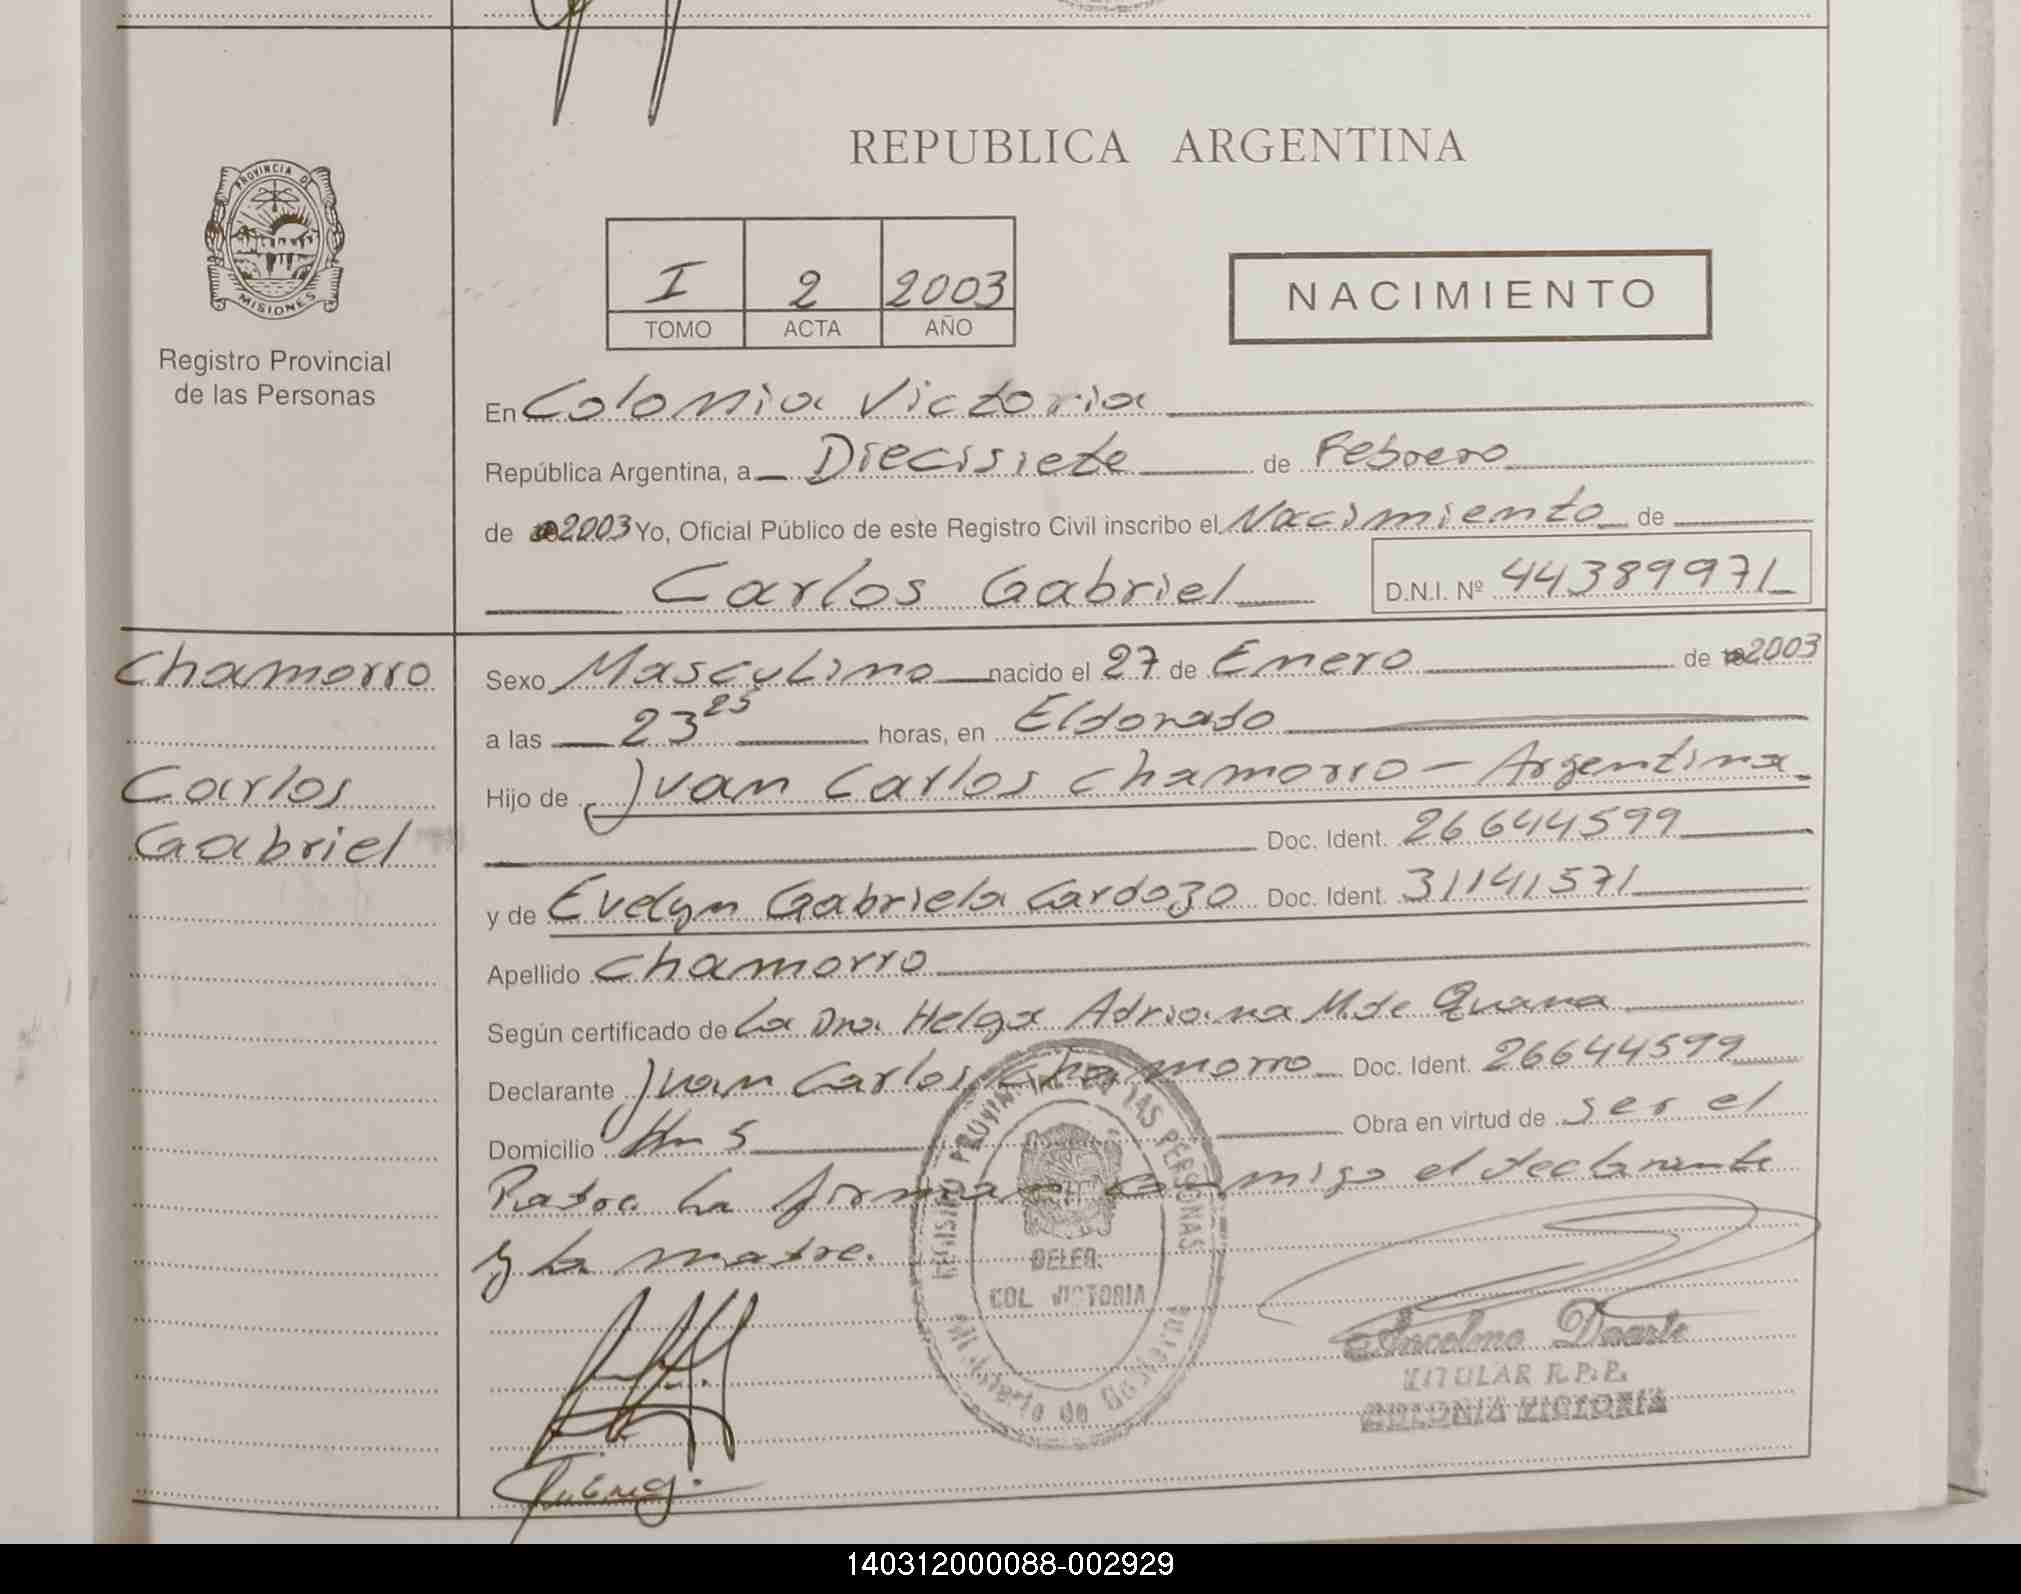 REPUBLICA ARGENTINA
PROVINCIA DE
MISIONES
Registro Provincial
de las Personas
I 2 2003
TOMO ACTA AÑO
NACIMIENTO
En Colonia Victoria
República Argentina, a Diecisiete de Febrero
de 2003 Yo, Oficial Público de este Registro Civil inscribo el Nacimiento de
Carlos Gabriel D.N.I. Nº 44389971
Chamorro
Carlos
Gabriel
Sexo Masculino nacido el 27 de Enero de 2003
a las 23 25 horas, en Eldorado
Hijo de Juan Carlos Chamorro - Argentina
Doc. Ident. 26644599
y de Evelyn Gabriela Cardozo Doc. Ident. 31141571
Apellido Chamorro
Según certificado de La Dra. Helga Adriana M. de Quana
Declarante Juan Carlos Chamorro Doc. Ident. 26644599
Domicilio Km 5 Obra en virtud de ser el
Padre. La firman conmigo el declarante
y la madre.
REGISTRO PROVINCIAL DE LAS PERSONAS
DELEG.
COL. VICTORIA
Ministerio de Gobierno
Ancelmo Duarte
TITULAR R.P.P.
COLONIA VICTORIA
140312000088-002929